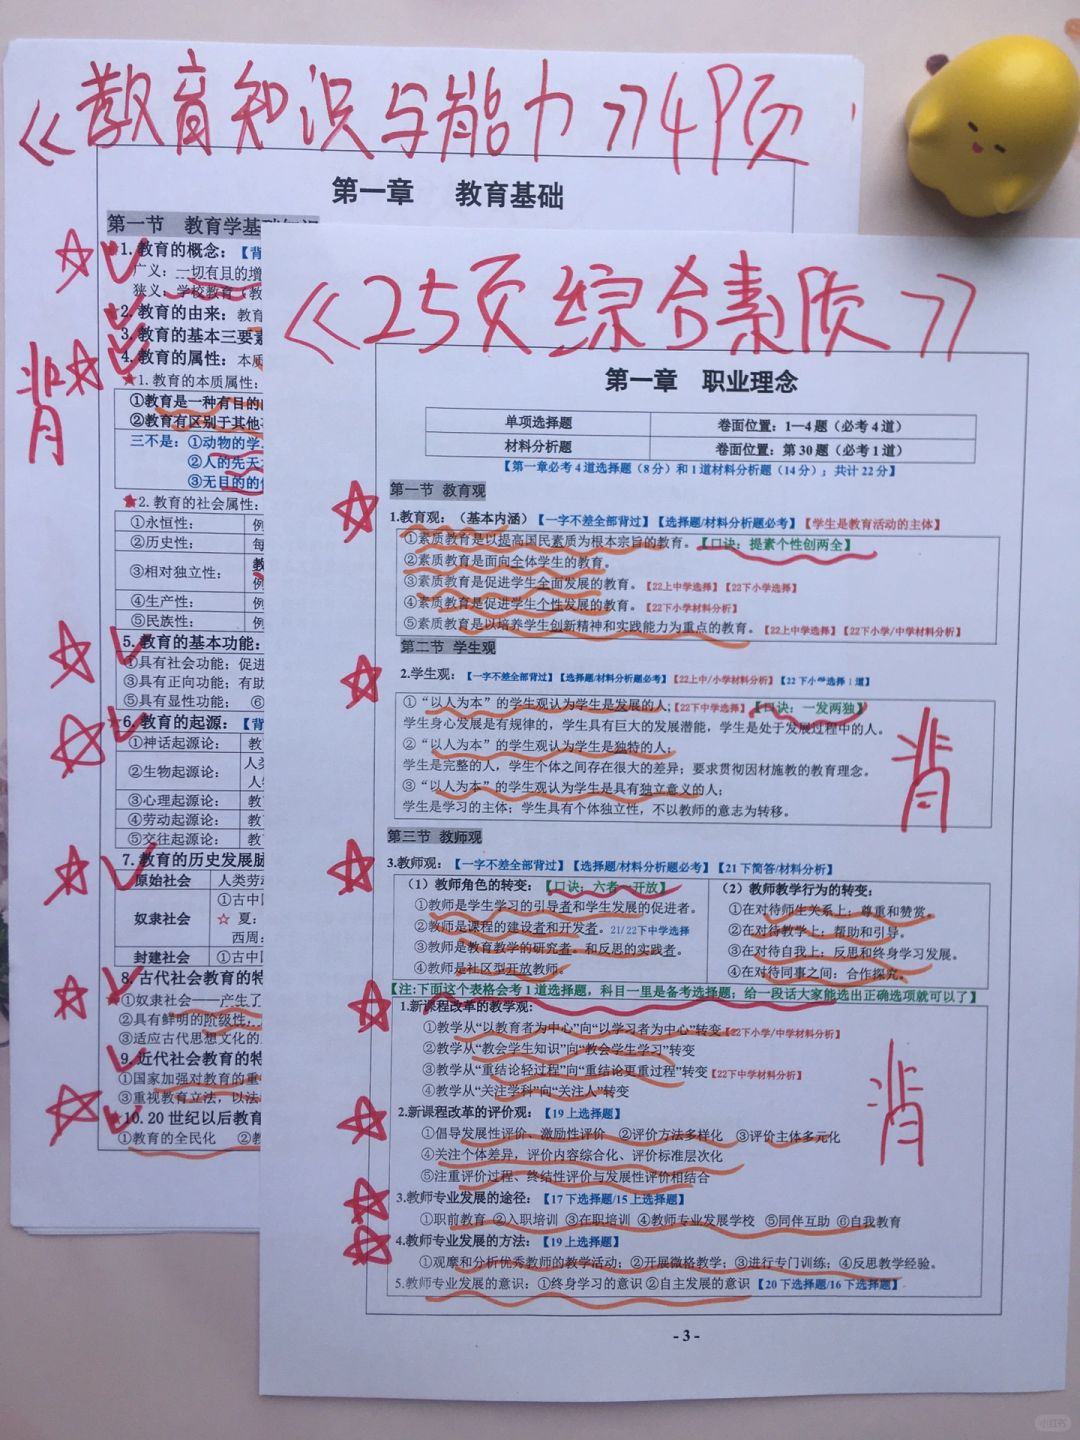 《教育知识与能力》49页
第一章 教育基础
第一节 教育学基础知识
1.教育的概念：【背
广义：一切有目的的增
狭义：学校教育（教
★2.教育的由来：教育
3.教育的基本三要素
4.教育的属性：本质
背
★1.教育的本质属性：
①教育是一种有目的的
②教育有区别于其他
三不是：①动物的学
②人的先天
③无目的的
★2.教育的社会属性：
①永恒性： 例
②历史性： 每
③相对独立性： 教
例
④生产性： 例
⑤民族性： 例
5.教育的基本功能：
①具有社会功能；促进
③具有正向功能；有助
⑤具有显性功能； ⑥
6.教育的起源：【背
①神话起源论： 教
②生物起源论： 人类
人
③心理起源论： 教
④劳动起源论： 教
⑤交往起源论： 教
7.教育的历史发展脉
原始社会 人类劳动
奴隶社会 ①古中国
☆ 夏：
西周：
封建社会 ①古中国
8.古代社会教育的特
①奴隶社会——产生了
②具有鲜明的阶级性，
③适应古代思想文化的
9.近代社会教育的特
①国家加强对教育的重
③重视教育立法，以法
10.20世纪以后教育
①教育的全民化 ②教
《25页综合素质》
第一章 职业理念
单项选择题 卷面位置：1—4题（必考4道）
材料分析题 卷面位置：第30题（必考1道）
【第一章必考4道选择题（8分）和1道材料分析题（14分）；共计22分】
第一节 教育观
1.教育观：（基本内涵）【一字不差全部背过】【选择题/材料分析题必考】【学生是教育活动的主体】
①素质教育是以提高国民素质为根本宗旨的教育。【口诀：提素个性创两全】
②素质教育是面向全体学生的教育。
③素质教育是促进学生全面发展的教育。【22上中学选择】【22下小学选择】
④素质教育是促进学生个性发展的教育。【22下小学材料分析】
⑤素质教育是以培养学生创新精神和实践能力为重点的教育。【22上中学选择】【22下小学/中学材料分析】
第二节 学生观
2.学生观：【一字不差全部背过】【选择题/材料分析题必考】【22上中/小学材料分析】【22下小学选择1道】
①“以人为本”的学生观认为学生是发展的人；【22下中学选择】【口诀：一发两独】
学生身心发展是有规律的，学生具有巨大的发展潜能，学生是处于发展过程中的人。
②“以人为本”的学生观认为学生是独特的人；
学生是完整的人，学生个体之间存在很大的差异；要求贯彻因材施教的教育理念。
③“以人为本”的学生观认为学生是具有独立意义的人；
学生是学习的主体；学生具有个体独立性，不以教师的意志为转移。
背
第三节 教师观
3.教师观：【一字不差全部背过】【选择题/材料分析题必考】【21下简答/材料分析】
（1）教师角色的转变：【口诀：六者一开放】
①教师是学生学习的引导者和学生发展的促进者。
②教师是课程的建设者和开发者。21/22下中学选择
③教师是教育教学的研究者。和反思的实践者。
④教师是社区型开放教师。
（2）教师教学行为的转变：
①在对待师生关系上：尊重和赞赏。
②在对待教学上：帮助和引导。
③在对待自我上：反思和终身学习发展。
④在对待同事之间：合作探究。
【注：下面这个表格会考1道选择题，科目一里是备考选择题；给一段话大家能选出正确选项就可以了】
1.新课程改革的教学观：
①教学从“以教育者为中心”向“以学习者为中心”转变【22下小学/中学材料分析】
②教学从“教会学生知识”向“教会学生学习”转变
③教学从“重结论轻过程”向“重结论更重过程”转变【22下中学材料分析】
④教学从“关注学科”向“关注人”转变
2.新课程改革的评价观：【19上选择题】
①倡导发展性评价、激励性评价 ②评价方法多样化 ③评价主体多元化
④关注个体差异，评价内容综合化、评价标准层次化
⑤注重评价过程、终结性评价与发展性评价相结合
背
3.教师专业发展的途径：【17下选择题/15上选择题】
①职前教育 ②入职培训 ③在职培训 ④教师专业发展学校 ⑤同伴互助 ⑥自我教育
4.教师专业发展的方法：【19上选择题】
①观摩和分析优秀教师的教学活动；②开展微格教学；③进行专门训练；④反思教学经验。
5.教师专业发展的意识：①终身学习的意识 ②自主发展的意识【20下选择题/16下选择题】
- 3 -
小红书